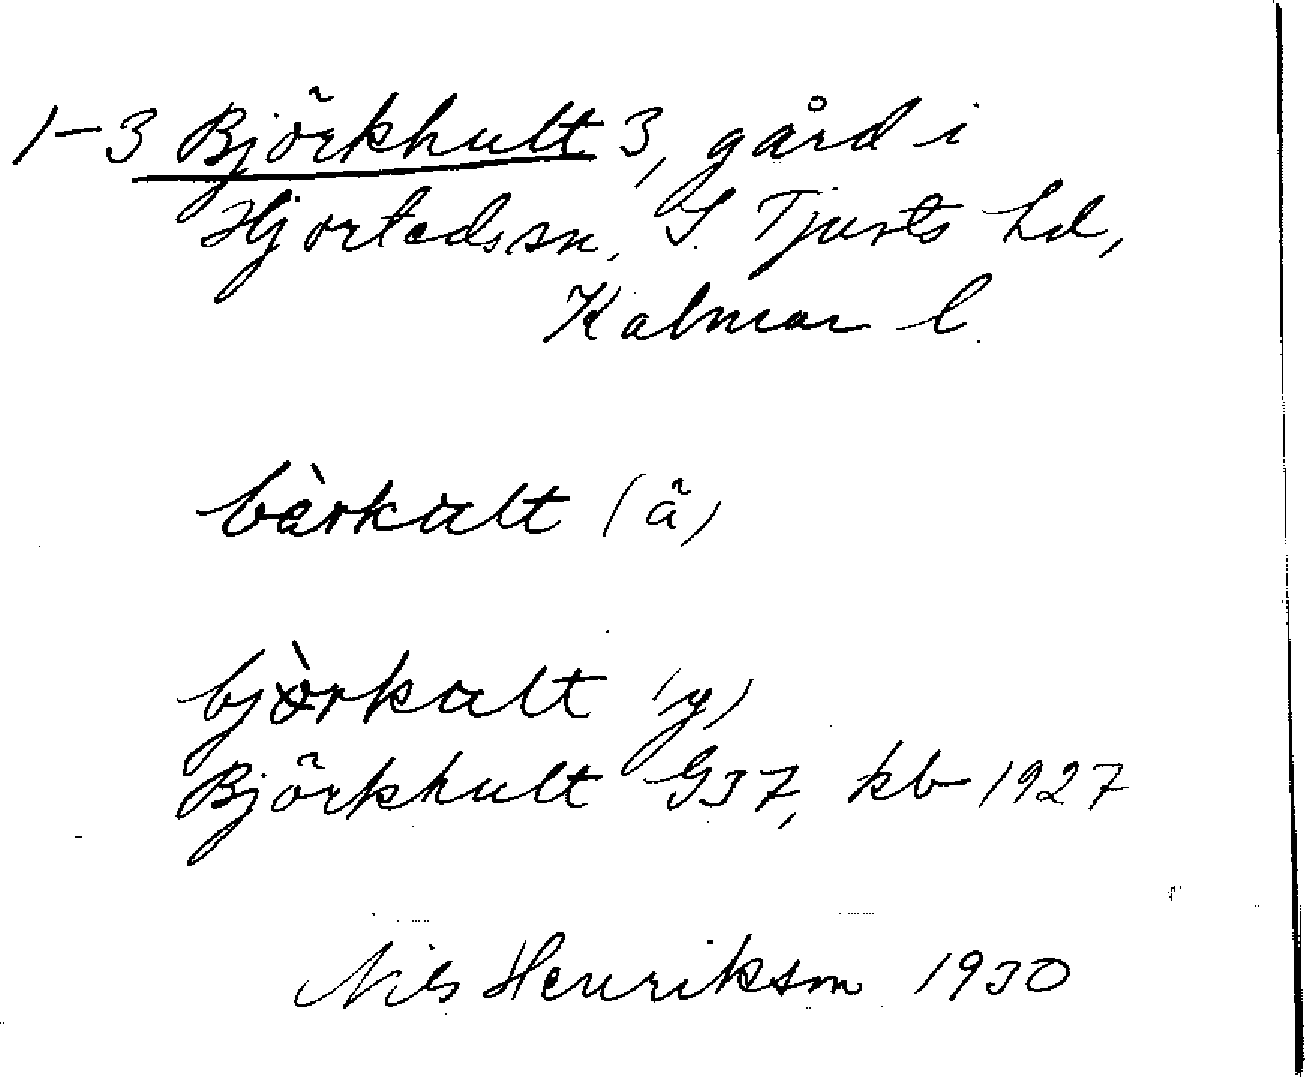 1-3 Björkhult 3, gård i
Hjorteds sn, S. Tjusts hd,
Kalmar l.
bàrkalt (ä)
bjòrkalt (y)
Björkhult GJ7, kb 1927
Nils Henrikson 1930